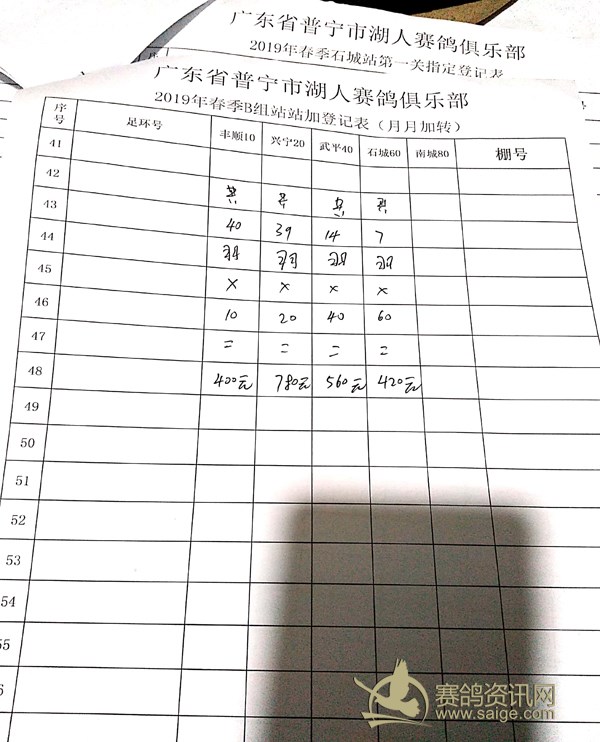 广东省普宁市湖人赛鸽俱乐部
2019年春季石城站第一关指定登记表
序
广东省普宁市湖人赛鸽俱乐部
2019年春季B组站站加登记表（月月加转）
序号 足环号 丰顺10 兴宁20 武平40 石城60 南城80 棚号
41
42
共 共 共 共
43
40 39 14 7
44
羽 羽 羽 羽
45
× × × ×
46
10 20 40 60
47
= = = =
48
400元 780元 560元 420元
49
50
51
52
53
54
55
6
赛鸽资讯网
www.saige.com